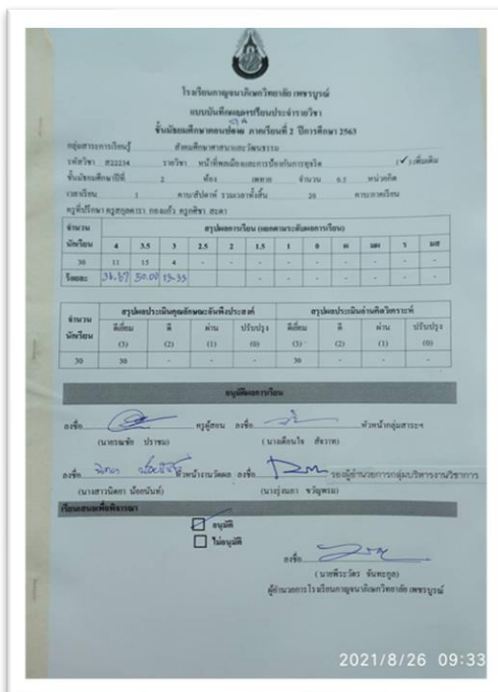 โรงเรียนกาญจนาภิเษกวิทยาลัย เพชรบูรณ์
แบบบันทึกผลการเรียนประจำรายวิชา
ชั้นมัธยมศึกษาตอน ภาคเรียนที่ 2 ปีการศึกษา 2563
กลุ่มสาระการเรียนรู้ สังคมศึกษาศาสนาและวัฒนธรรม
รหัสวิชา ส22234 รายวิชา หน้าที่พลเมืองและการป้องกันการทุจริต (✓) เพิ่มเติม
ชั้นมัธยมศึกษาปีที่ 2 ห้อง จำนวน 0.5 หน่วยกิต
เวลาเรียน 1 คาบ/สัปดาห์ รวมเวลาทั้งสิ้น 20 คาบ/ภาคเรียน
ครูที่ปรึกษา
จำนวนนักเรียน สรุปผลการเรียน (แยกตามระดับผลการเรียน)
4 3.5 3 2.5 2 1.5 1 0 ร มส
30 11 15 4 - - - - - - - - -
ร้อยละ 36.67 50.00 13.33
จำนวนนักเรียน สรุปผลประเมินคุณลักษณะอันพึงประสงค์ สรุปผลประเมินอ่านคิดวิเคราะห์
ดีเยี่ยม ดี ผ่าน ปรับปรุง ดีเยี่ยม ดี ผ่าน ปรับปรุง
(3) (2) (1) (0) (3) (2) (1) (0)
30 30 - - - 30 - - -
อนุมัติผลการเรียน
ลงชื่อ ครูผู้สอน ลงชื่อ หัวหน้ากลุ่มสาระฯ
(นายรณชัย ปราชม) (นางเตือนใจ)
ลงชื่อ หัวหน้างานวัดผล ลงชื่อ รองผู้อำนวยการกลุ่มบริหารงานวิชาการ
(นางสาวนิตยา น้อยนันท์) (นางรุ่งนภา ขวัญพรม)
เรียนเสนอเพื่อพิจารณา
อนุมัติ
ไม่อนุมัติ
ลงชื่อ
(นายพีระวัตร จันทะกูล)
ผู้อำนวยการโรงเรียนกาญจนาภิเษกวิทยาลัย เพชรบูรณ์
2021/8/26 09:33